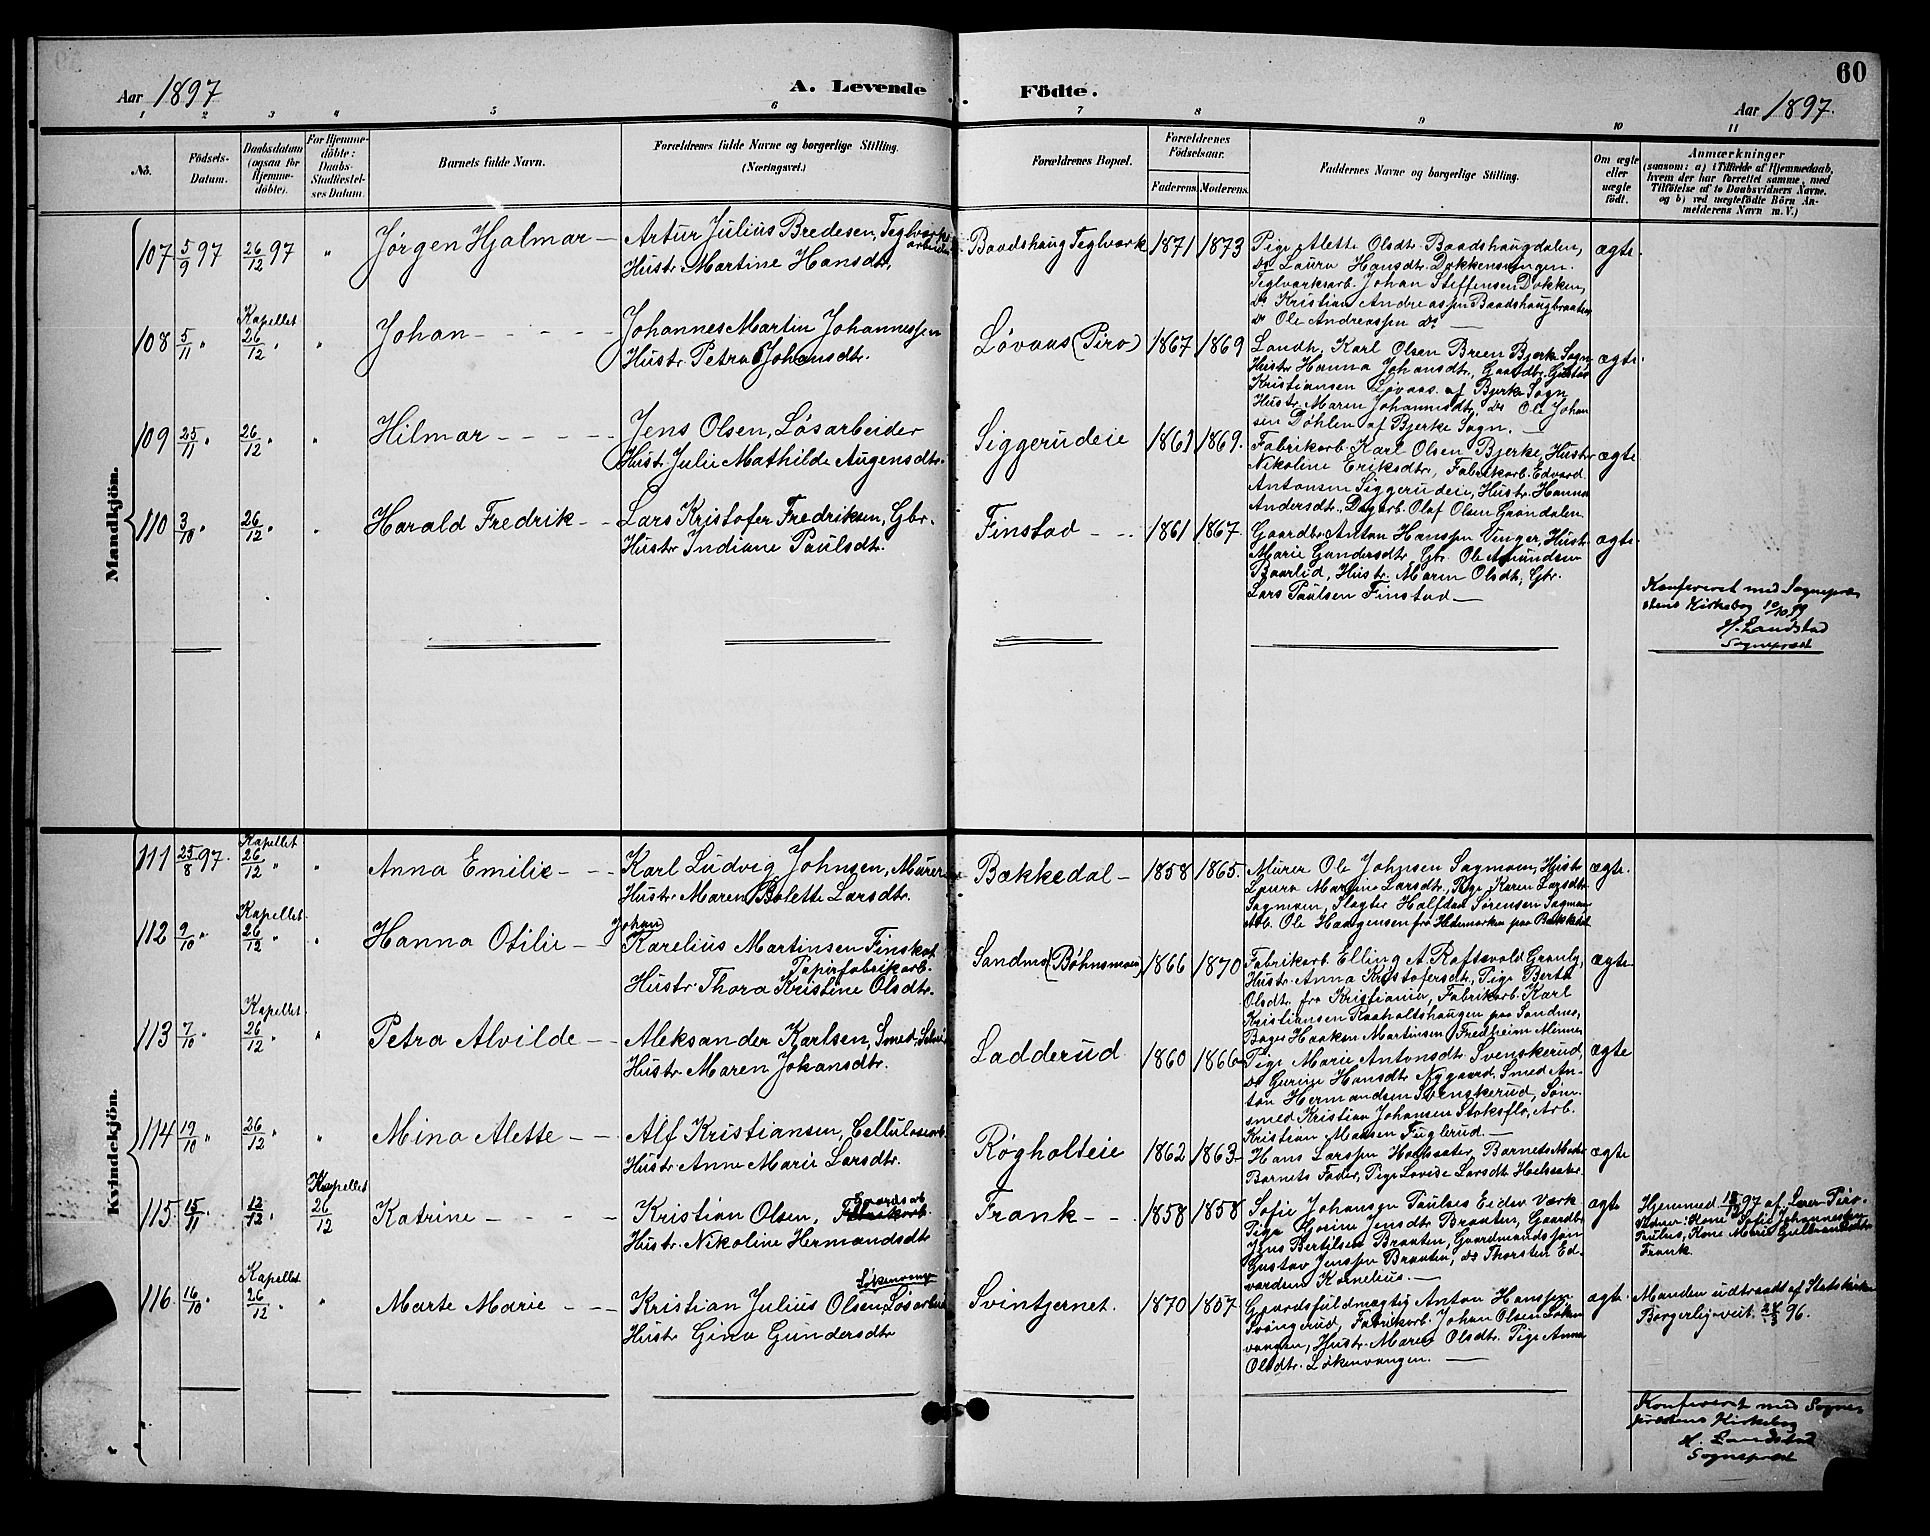 60
Aar 1897
A. Levende
Födte.
Aar 1897.
1 2 3 4 5 6 7 8 9 10 11
No.
Födsels-Datum.
Daabsdatum (ogsaa for Hjemme-döbte).
For Hjemme-döbte: Daabs-Stadfæstelses Datum.
Barnets fulde Navn.
Forældrenes fulde Navne og borgerlige Stilling. (Næringsvei.)
Forældrenes Bopæl.
Forældrenes Födselsaar.
Faderens. Moderens.
Faddernes Navne og borgerlige Stilling.
Om ægte eller uægte födt.
Anmærkninger
(saasom: a) i Tilfælde af Hjemmedaab,
hvem der har forrettet samme, med
Tilföielse af to Daabsvidners Navne,
og b) ved uægtefödte Börn An-
melderens Navn m. V.)
Mandkjön.
107 5/9 97 26/12 97 " Jørgen Hjalmar —
Artur Julius Bredesen, Teglværks
arbeider
Hustr. Martine Hansdtr.
Baadshaug Teglværk 1871 1873
Pige Alette Olsdtr. Baadshaugdalen,
do Laura Hansdtr. Dokkensvingen.
Teglværksarb. Johan Steffensen Dokken,
do Kristian Andreassen Baadshaugbraaten
do Ole Andreassen do —
ægte
108 5/11 " Kapellet 26/12 " " Johan - - - -
Johannes Martin Johannessen
Hustr. Petra Johansdtr.
Løvaas (Piro) 1867 1869
Landh. Karl Olsen Breen Bjerke Sogn
Hustr. Hanna Johansdtr., Gaardbr. Gustav
Kristiansen Løvaas af Bjerke Sogn
Hustr. Maren Johannesdtr. do Ole Johan
sen Døhlen af Bjerke Sogn. —
ægte
109 25/11 " 26/12 " " Hilmar - - - -
Jens Olsen, Løsarbeider
Hustr. Julie Mathilde Augensdtr.
Siggerudeie 1863 1869.
Fabrikarb. Karl Olsen Bjerke, Hustr.
Nikoline Eriksdtr., Fabrikarb. Edvard
Antonsen Siggerudeie, Hustr. Hanna
Andersdtr., Dagarb. Olaf Olsen Grøndalen
ægte
110 3/10 " 26/12 " " Harald Fredrik - -
Lars Kristofer Fredriksen, Gbr.
Hustr. Indiane Paulsdtr.
Finstad - - 1861 1867.
Gaardbr. Anton Hanssen Vinger, Hustr.
Marie Gundersdtr., Gbr. Ole Amundsen
Baarlid, Hustr. Maren Olsdtr., Gbr.
Lars Paulsen Finstad —
ægte
Konfereret med Sognepræ
stens Kirkebog 10/10 99
H. Landstad
Sogneprest
Kvindekjön.
111 25/8 97. Kapellet 26/12 " " Anna Emilie - -
Karl Ludvig Johnsen, Murer
Hustr. Maren Bolette Larsdtr.
Bækkedal - 1858 1865.
Murer Ole Johnsen Sagmoen, Hustr.
Laura Martine Larsdtr., Pige Karen Larsdtr.
Sagmoen, Slagter Halfdan Sørensen Sagmoen
Arb. Ole Haagensen fra Hedemarken paa Bækkedal
ægte.
112 9/10 " Kapellet 26/12 " " Hanna Otilie -
Johan
Karelius Martinsen Finskot
Papirfabrikarb.
Hustr. Thora Kristine Olsdtr.
Sandmo (Bøhnsmoen) 1866 1870
Fabrikarb. Elling A. Raftevold Granly,
Hustr. Anna Kristofersdtr., Pige Berte
Olsdtr. fra Kristiania, Fabrikarb. Karl
Kristiansen Raaholtshaugen paa Sandmo,
Bager Haakon Martinsen Fredheim Minne
ægte
113 7/10 " Kapellet 26/12 " " Petra Alvilde - -
Aleksander Karlsen, Smed, Selvei
Hustr. Maren Johansdtr.
Ladderud 1860 1866
Pige Marie Antonsdtr. Svenskerud,
do Gurine Hansdtr. Nygaard, Smed An-
ton Hermandsen Svenskerud, Søm
smed Kristian Johansen Stokkflo, Arb.
Kristian Madsen Fuglerud. —
ægte
114 19/10 " 26/12 " " Mina Alette - -
Alf Kristiansen, Cellulosearb.
Hustr. Anne Marie Larsdtr.
Røgholteie 1862 1863
Hans Larssen Holtsæter, Barnets Moder
Barnets Fader, Pige Lovise Larsdtr. Holsæter
ægte
115 15/11 " 12/12 " Kapellet 26/12 Katrine - - - -
Kristian Olsen, Gaardsarb
Fabrikarb.
Hustr. Nikoline Hermandsdtr
Frank - - 1858 1858
Sofie Johansen Paulses Eidsv. Værk
Pige Gosine Jensdtr. Braaten, Gaardbr.
Jens Bertilsen Braaten, Gaardmandssøn
Gustav Jenssen Braaten, do Thorsten Ed-
vardsen Kornelius. —
ægte
Hjemmed. 18/11 97 af Lærer Piro.
Vidner: Kone Sofie Johannessen
Paulus, Kone Marie Gulbrandsdtr.
Frank.
116 16/10 " Kapellet 26/12 " " Marte Marie - - -
Løkenvangen
Kristian Julius Olsen, Løsarbeid
Hustr. Gina Gundersdtr
Svintjernet. 1870 1857
Gaardsfuldmægtig Anton Hanssen
Svingerud, Fabrikarb. Johan Olsen Løken
vangen, Hustr. Maren Olsdtr. Pige Anna
Olsdtr. Løkenvangen. —
ægte.
Manden udtraadt af Statskirken
Borgerlig viet 24/3 96.
Konfereret med Sogne-
præstens Kirkebog
H. Landstad
Sogneprest